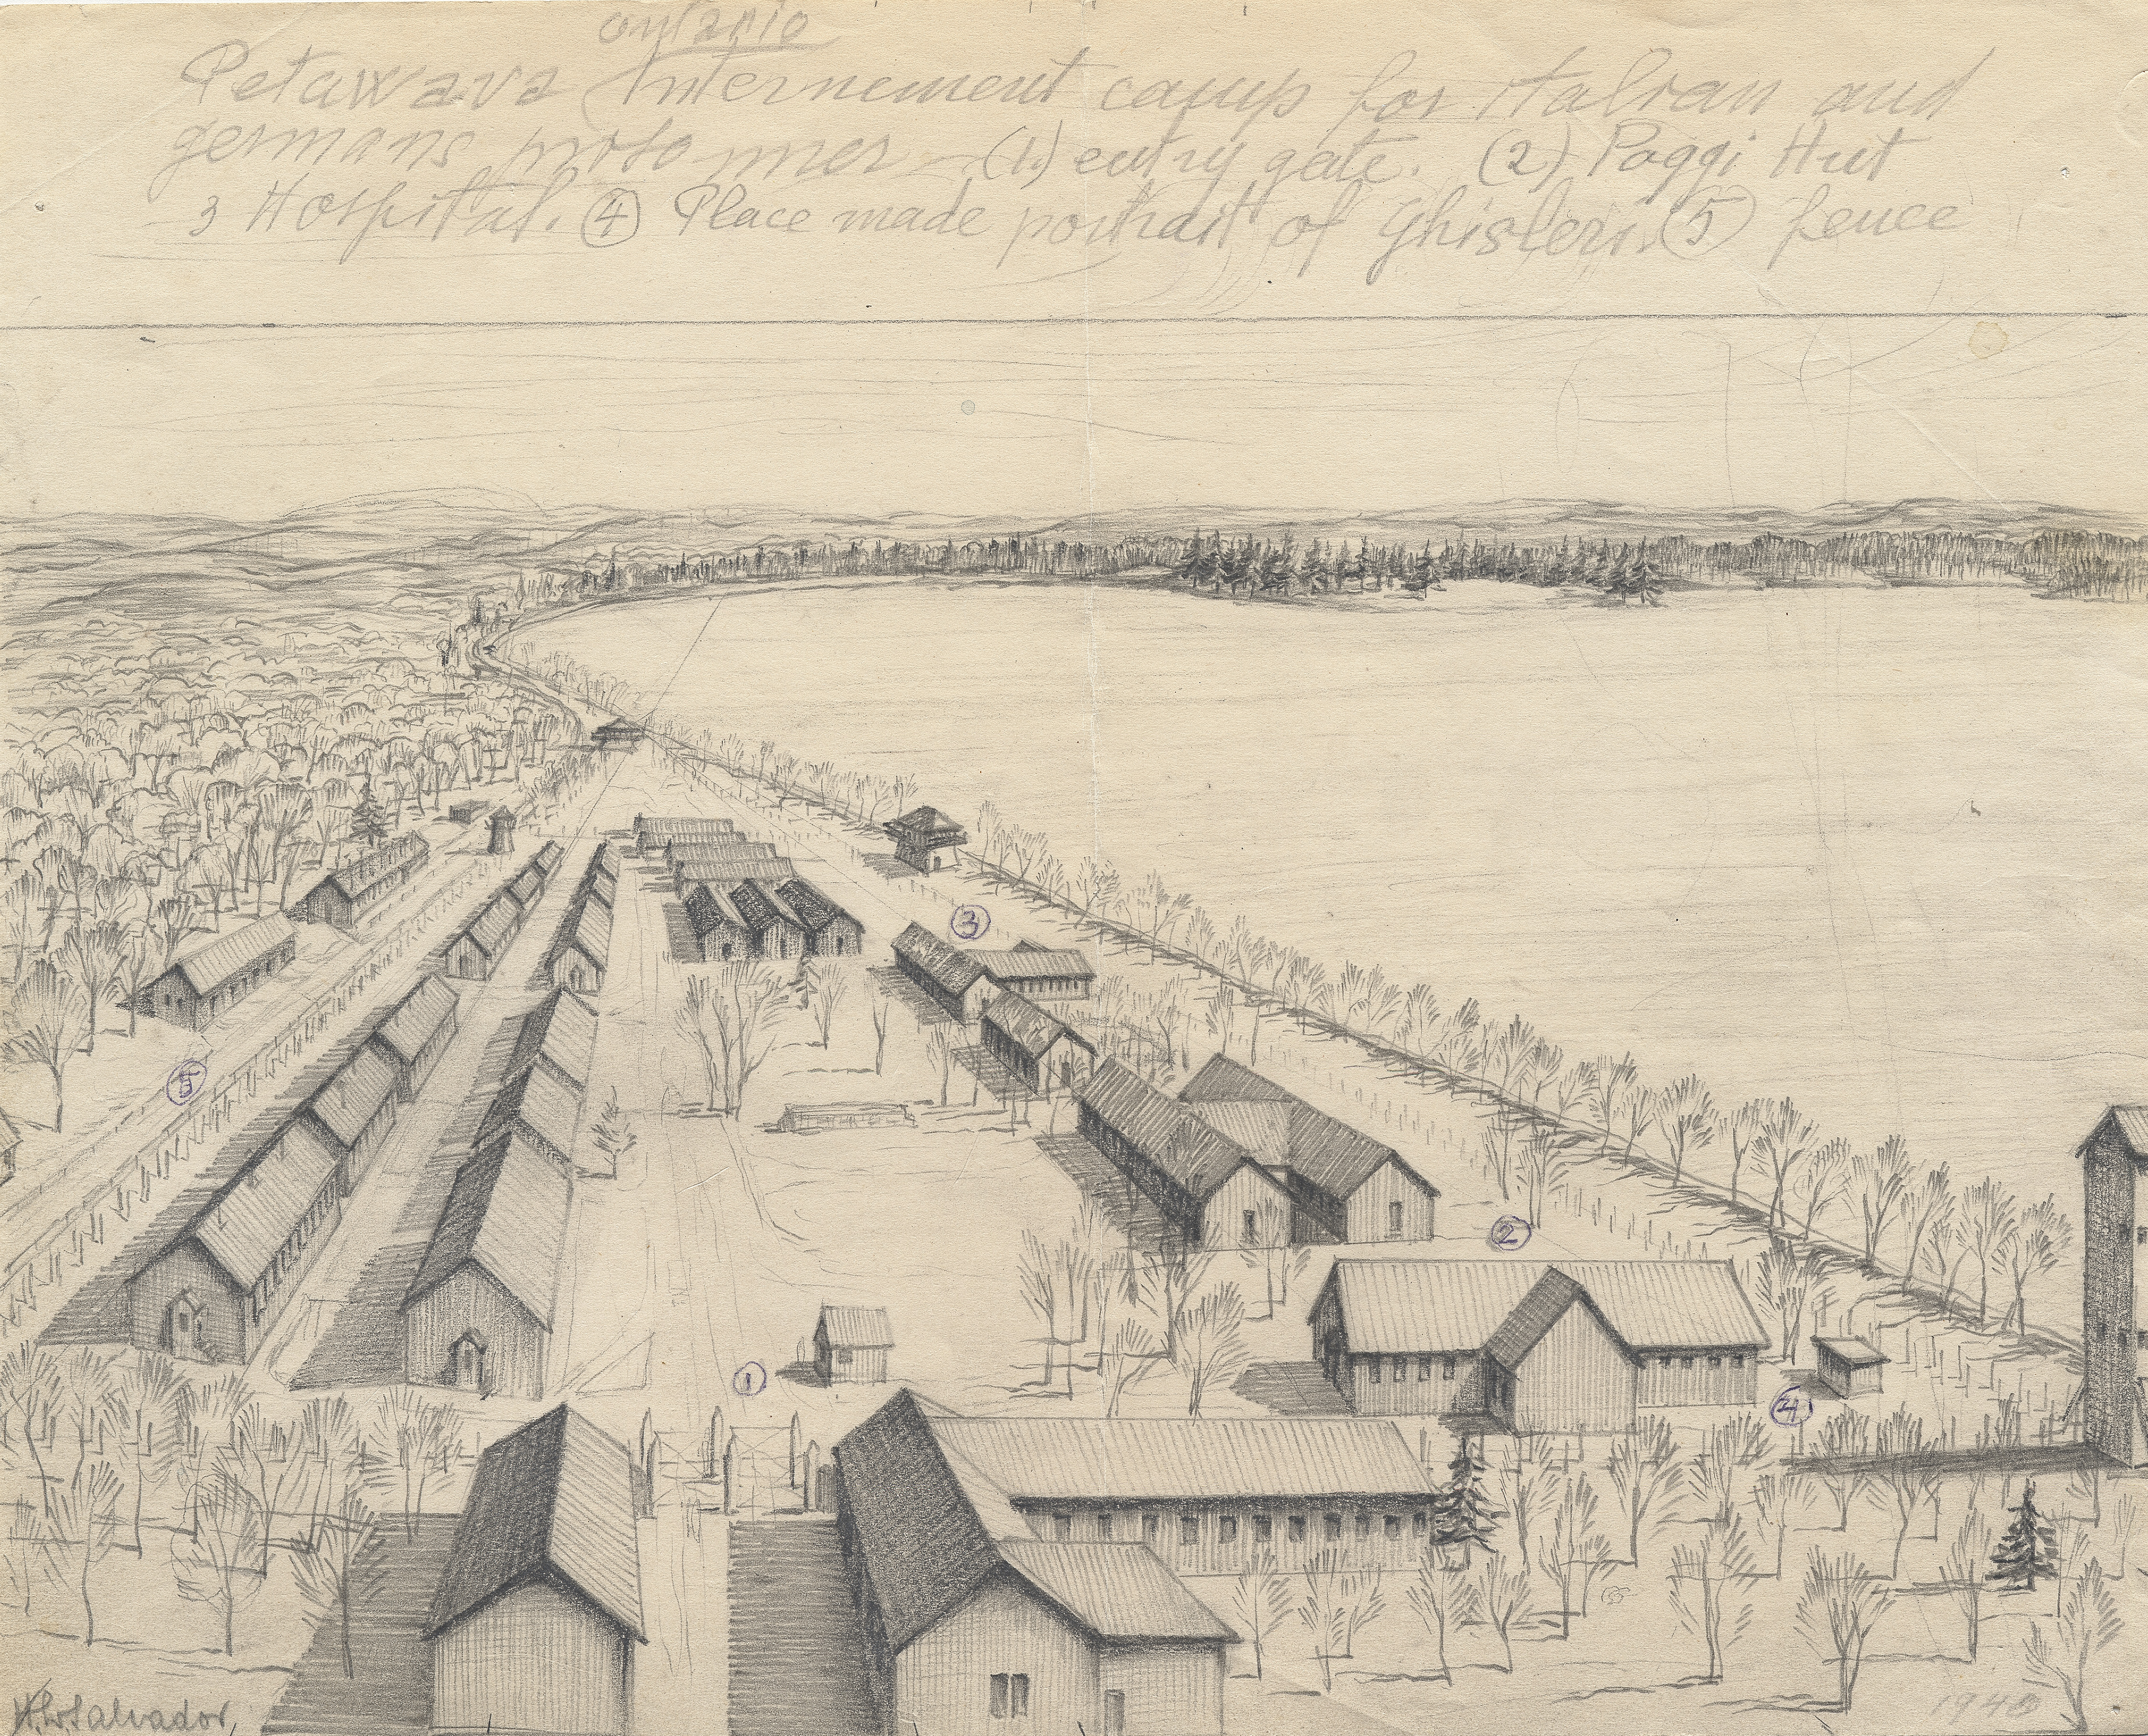 Ontario
Petawawa Internement camp for italian and
germans prisonnier — (1.) entry gate. (2) Poggi Hut
3 Hospital. ④ Place made portrait of Ghisleri. ⑤ fence
3
5
2
1
4
Salvador